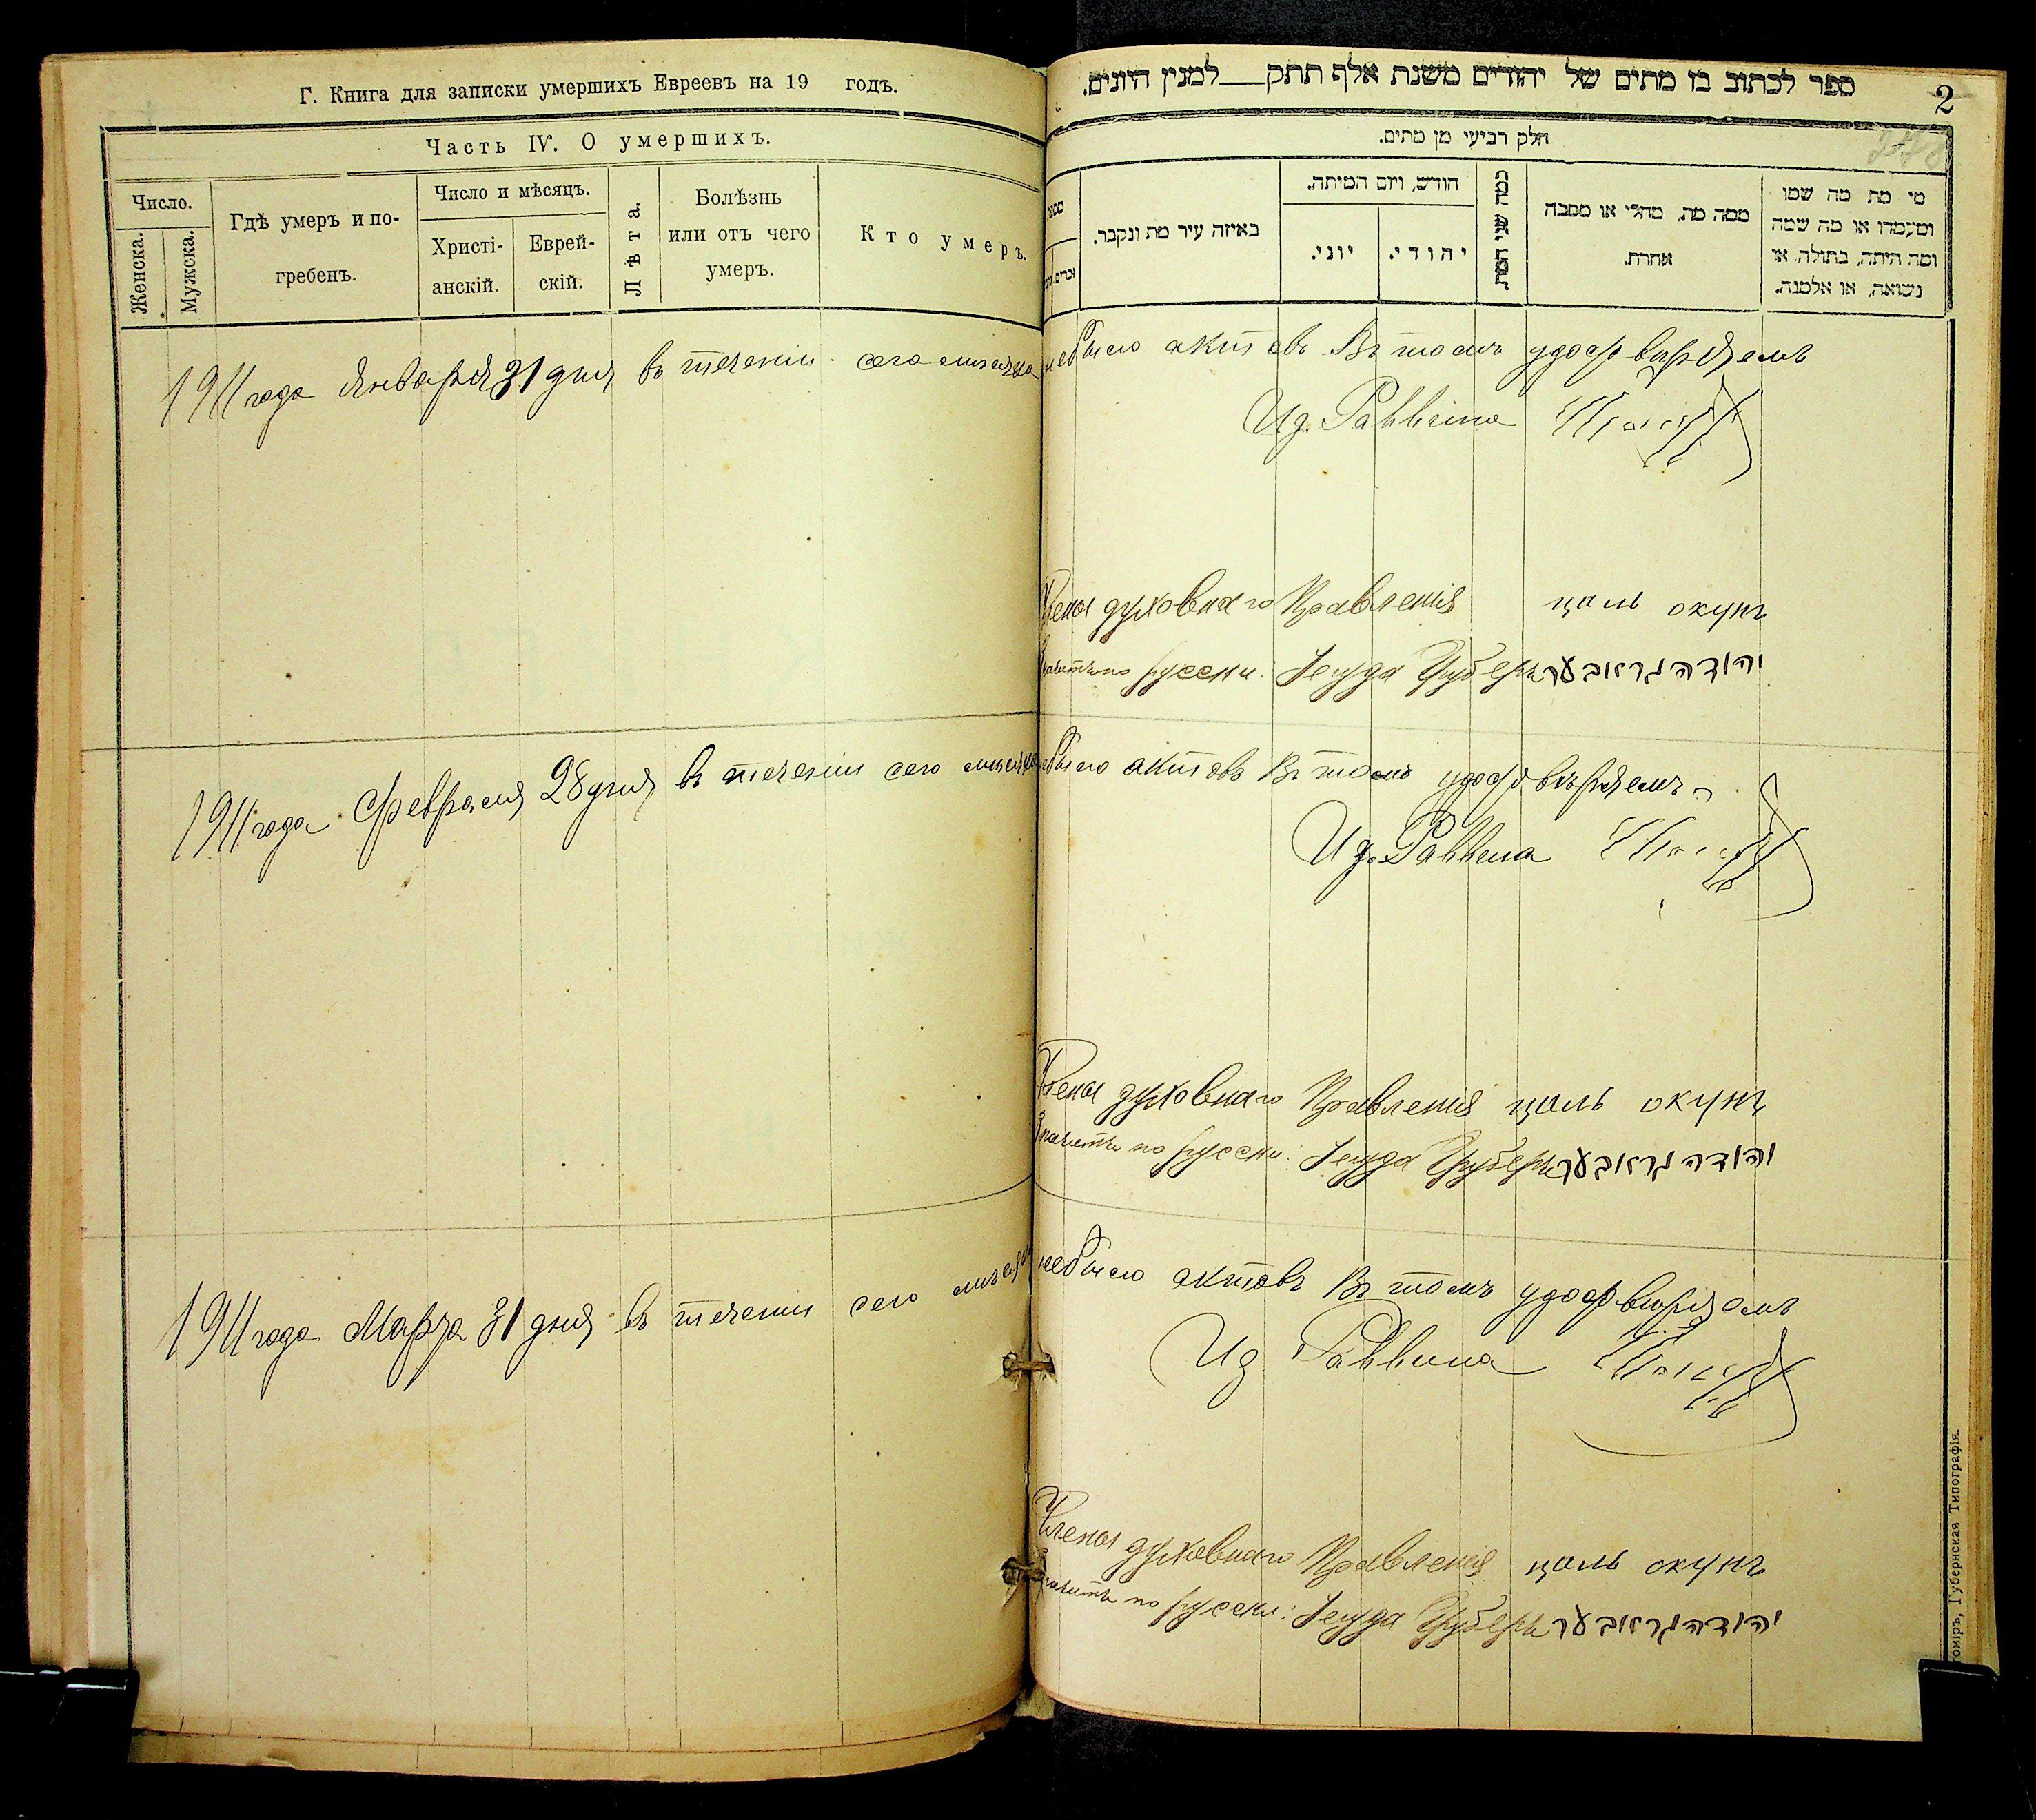 Г. Книга для записки умершихъ Евреевъ на 19 годъ.
Часть IV. О умершихъ.
Число.
Женска.
Мужска.
Гдѣ умеръ и по-
гребенъ.
Число и мѣсяцъ.
Христі-
анскій.
Еврей-
скій.
Лѣта.
Болѣзнь
или отъ чего
умеръ.
Кто умеръ.
ספר לכתוב בו מתים של יהודים משנת אלף תתק__למנין היונים.
2
חלק רביעי מן מתים.
מי מת מה שמו
ומעמדו או מה שמה
ומה היתה, בתולה, או
נשואה, או אלמנה.
ממה מת, מחלי או מסבה
אחרת.
כמה שני המת
חודש, ויום המיתה.
יהודי.
יוני.
באיזה עיר מת ונקבר.
1911 года Января 31 дня въ теченіи сего мѣсяца небыло актовъ Въ томъ удостовѣряемъ
И д. Раввина
Члены духовнаго Правленія цаль окунь
Значитъ по русски: Іегуда Груберъ יהודה גרובער
1911 года Февраля 28 дня въ теченіи сего мѣсяца небыло актовъ Въ томъ удостовѣряемъ
И д. Раввина
Члены духовнаго Правленія цаль окунь
Значитъ по русски: Іегуда Груберъ יהודה גרובער
1911 года Марта 31 дня въ теченіи сего мѣсяца небыло актовъ Въ томъ удостовѣряемъ
И д. Раввина
Члены духовнаго Правленія цаль окунь
Значитъ по русски: Іегуда Груберъ יהודה גרובער
томіръ, Губернская Типографія.